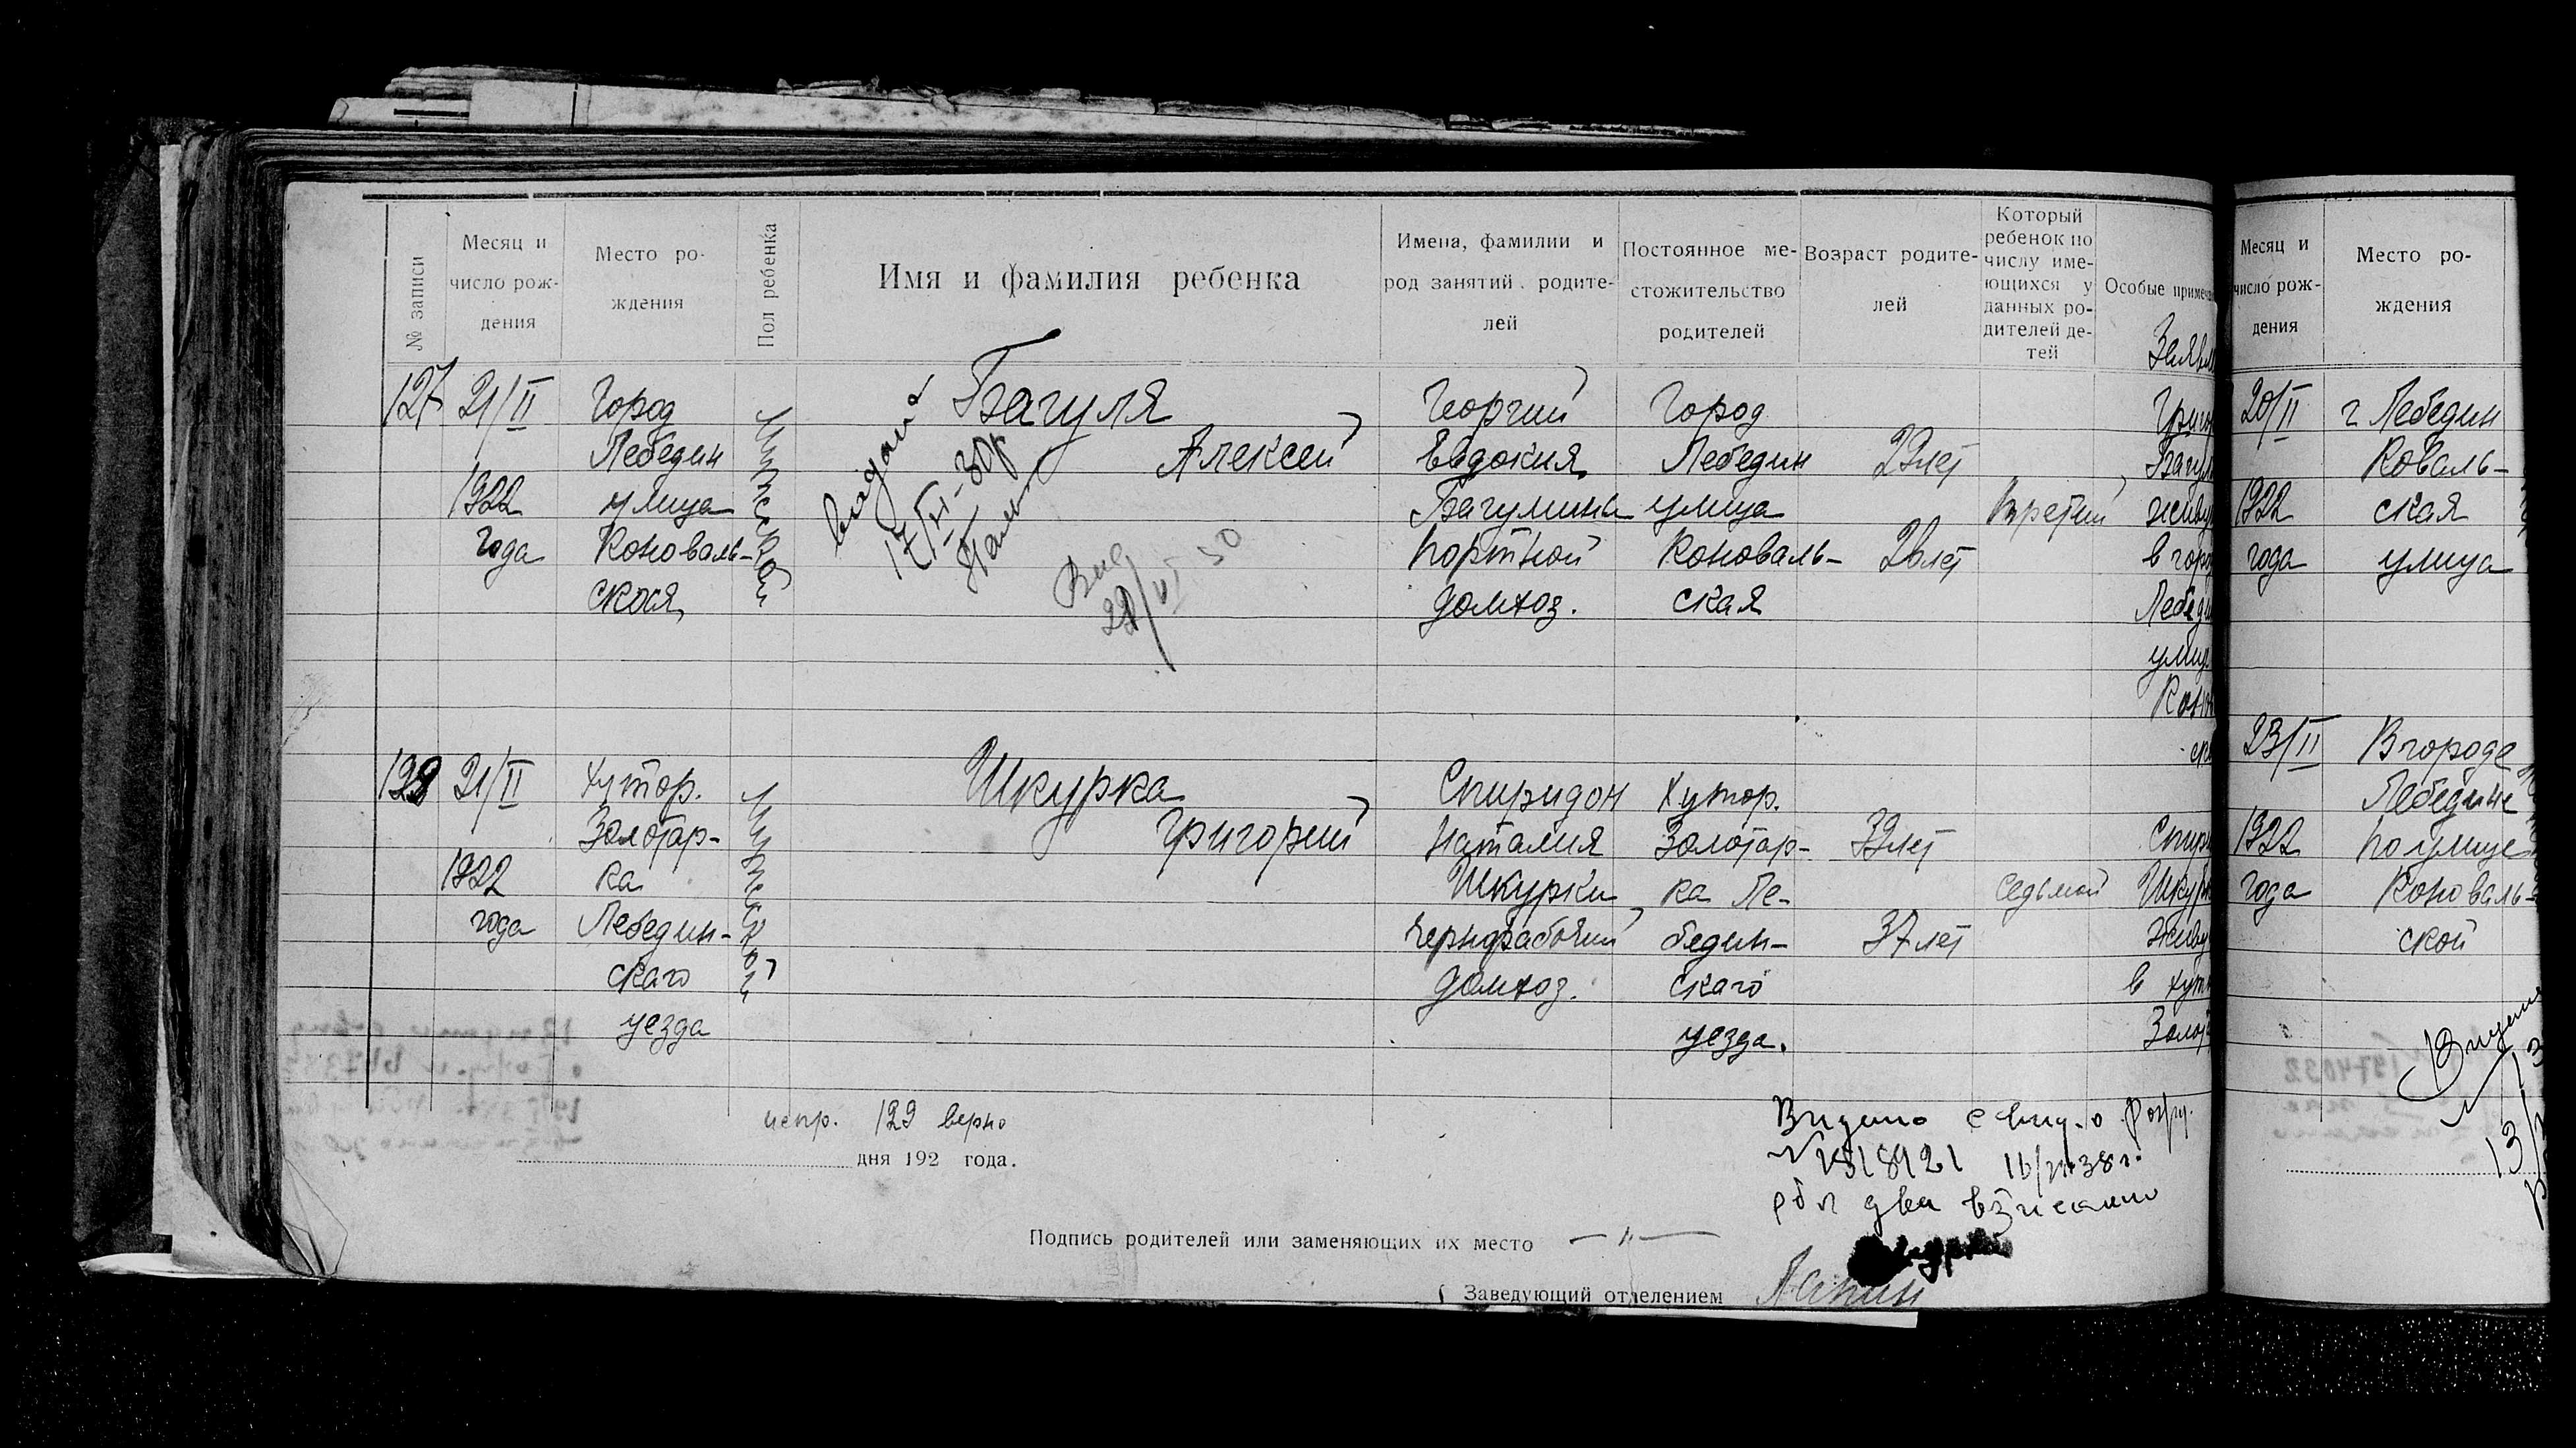 № записи
Месяц и число рож-
дения
Место ро-
ждения
Пол ребенка
Имя и фамилия ребенка
Имена, фамилии и
род занятий родите-
лей
Постоянное ме-
стожительство
родителей
Возраст родите-
лей
Который
ребенок по
числу име-
ющихся у
данных ро-
дителей де-
тей
Особые примеча
Заявл
127
21/II
1922
года
Город
Лебедин
улица
Коноваль-
ская
Мужеской
Багуля
Алексей
выдана
Георгий
Евдокия
Багулины
портной
домхоз.
Город
Лебедин
улица
Коноваль-
ская
29 лет
26 лет
третий
Григо
Багул
живу
в горо
Лебеди
улиц
Коно
ск
128
21/II
1922
года
Хутор.
Золотар-
ка
Лебедин-
скаго
уезда
Мужеской
Шкурка
Григорий
Спиридон
Наталия
Шкурки
чернорабочий
домхоз.
Хутор.
Золотар-
ка Ле-
бедин-
скаго
уезда.
39 лет
37 лет
седьмой
Спири
Шкурк
Живу
в хут
Золот
испр. 129 верно
дня 192 года.
Подпись родителей или заменяющих их место — " —
Заведующий отделением
Месяц и
число рож-
дения
Место ро-
ждения
20/II
1922
года
г Лебедин
Коваль-
ская
улица
23/II
1922
года
В городе
Лебедине
по улице
Коноваль-
ской